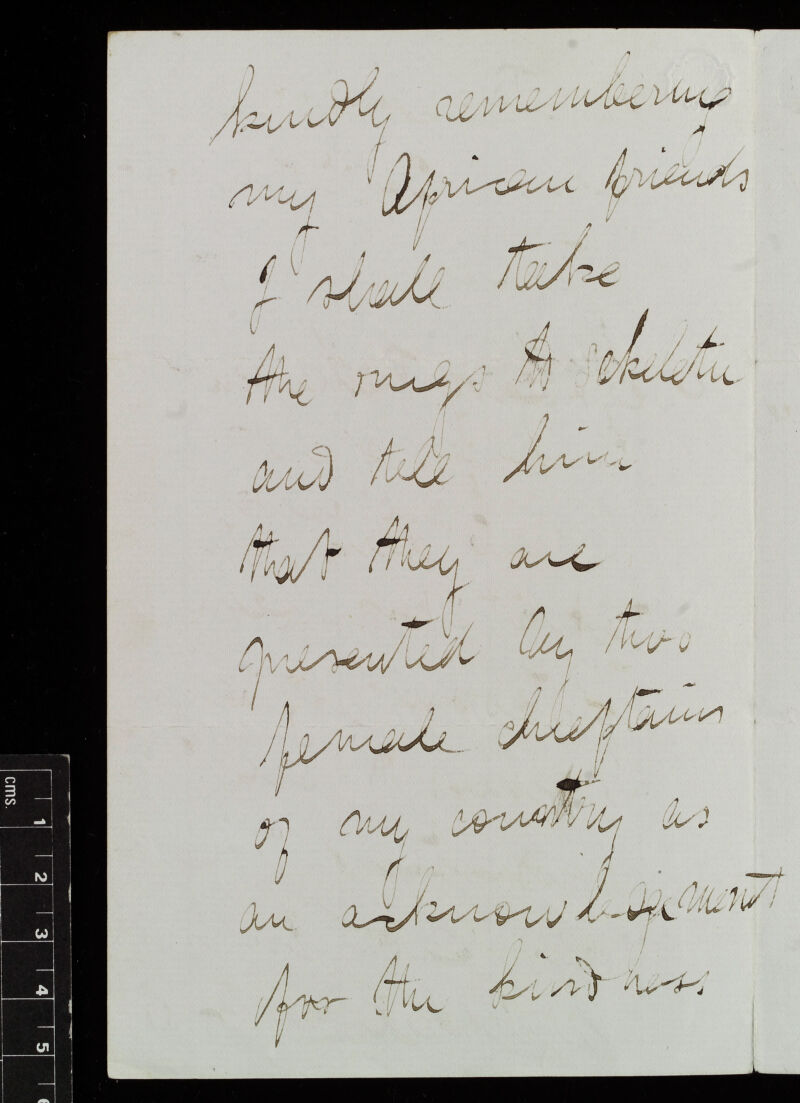 kindly remembering
my African friends
I shall take
the rings to Sekeletu
and tell him
that they are
presented by two
female chieftains
of my country as
an acknowledgement
for the kindness
cms.
1
2
3
4
5